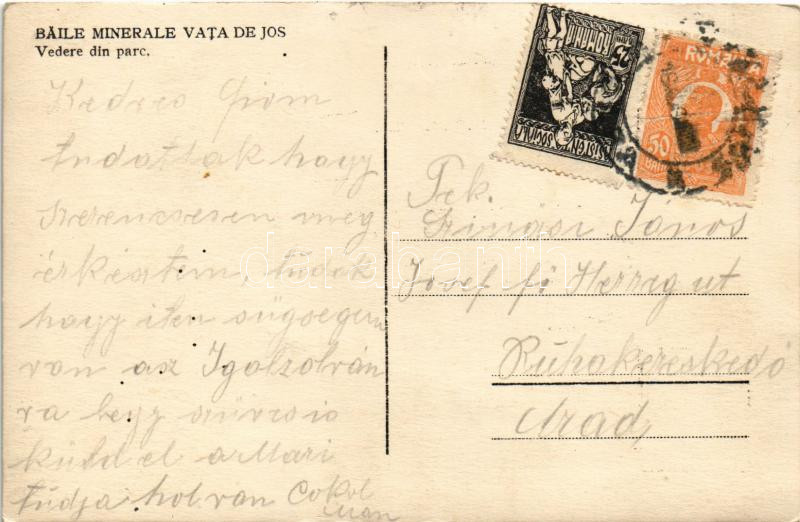 BĂILE MINERALE VAȚA DE JOS
Vedere din parc.
Kedves fiom
tudattak hogy
szerencsesen meg
érkeztem, tudok
hogy iten sügsegem
van az Igolzolván
ra hegy
küld el a Mari
tudja hol van Cokol
Tek.
János
Josef fő Herzeg ut
Ruhakereskedő
Arad,
ROMANIA
50
BANI
25
darabanth